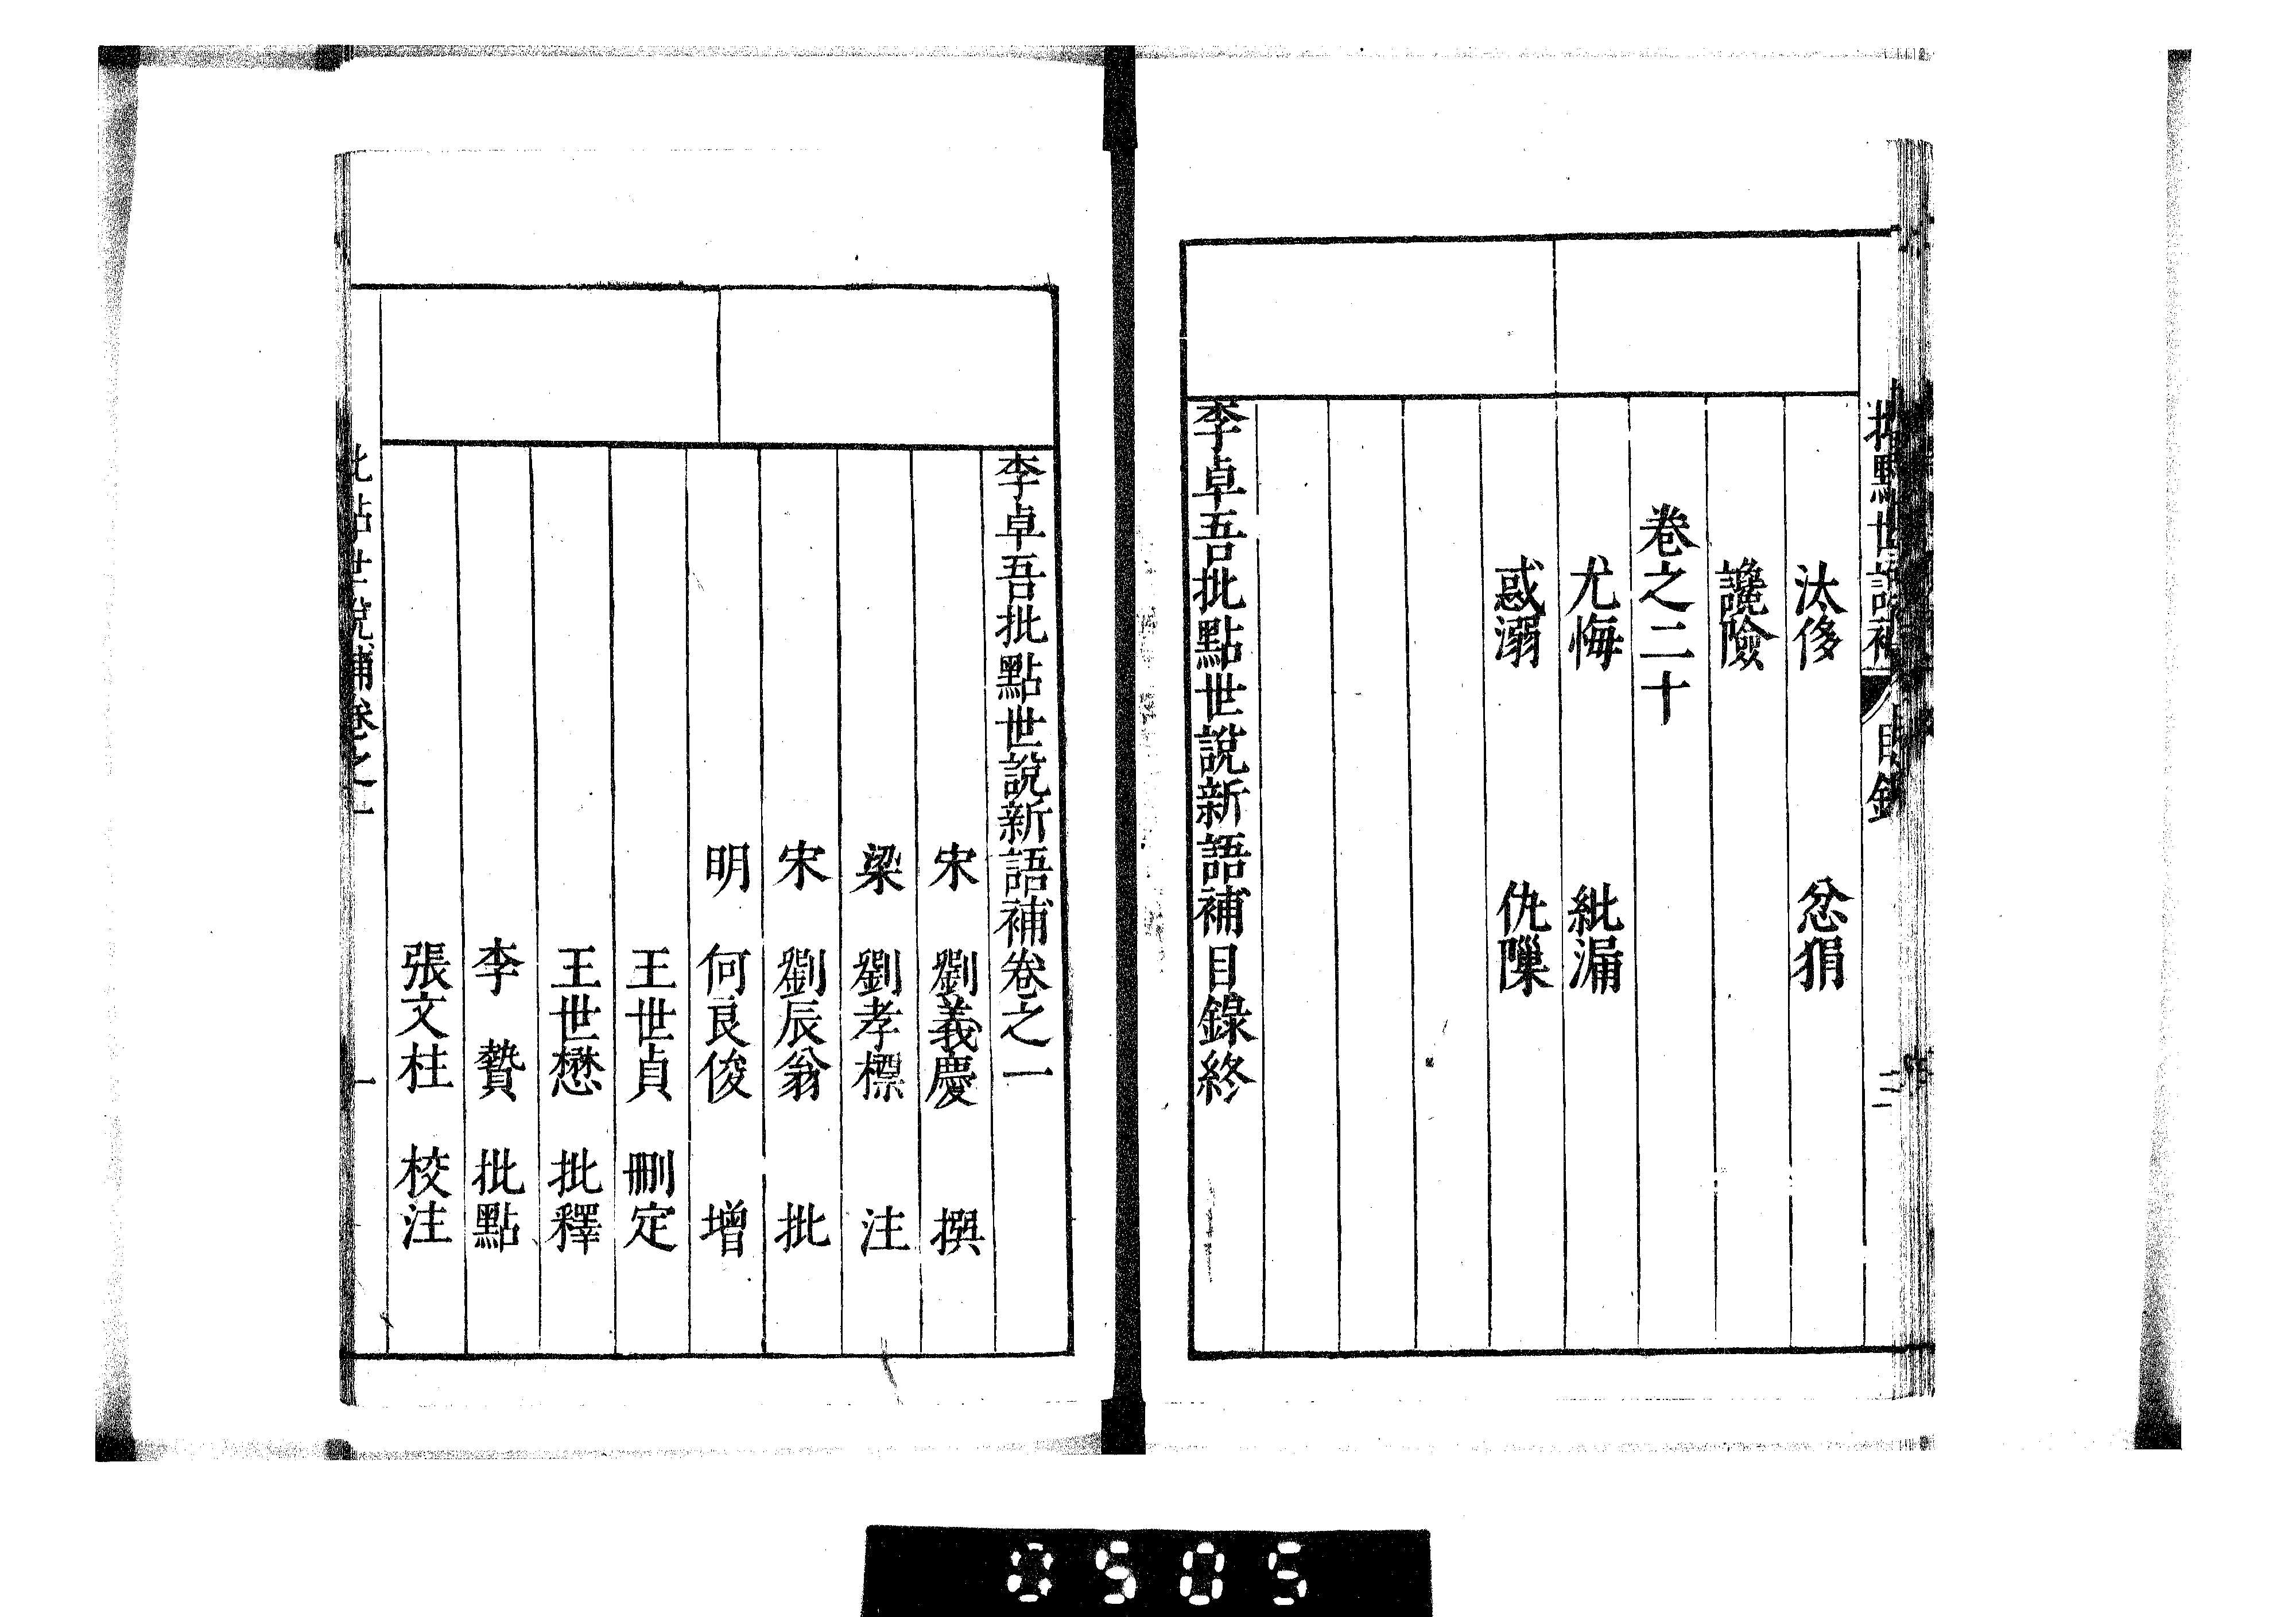 批點世說補 目錄 三
汰侈 忿狷
讒險
卷之二十
尤悔 紕漏
惑溺 仇隟
李卓吾批點世說新語補目錄終
李卓吾批點世說新語補卷之一
宋 劉義慶 撰
梁 劉孝標 注
宋 劉辰翁 批
明 何良俊 增
王世貞 刪定
王世懋 批釋
李贄 批點
張文柱 校注
批點世說補卷之一 一
0505